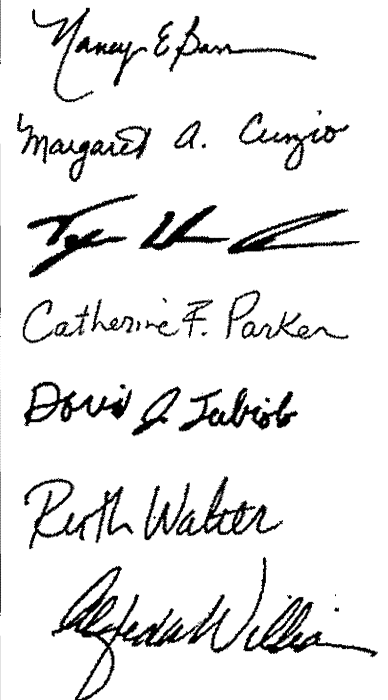 Nancy E Barr
Margaret A. Cunzio
Catherine F. Parker
David J. Tubiolo
Ruth Walter
Alfreda Williams